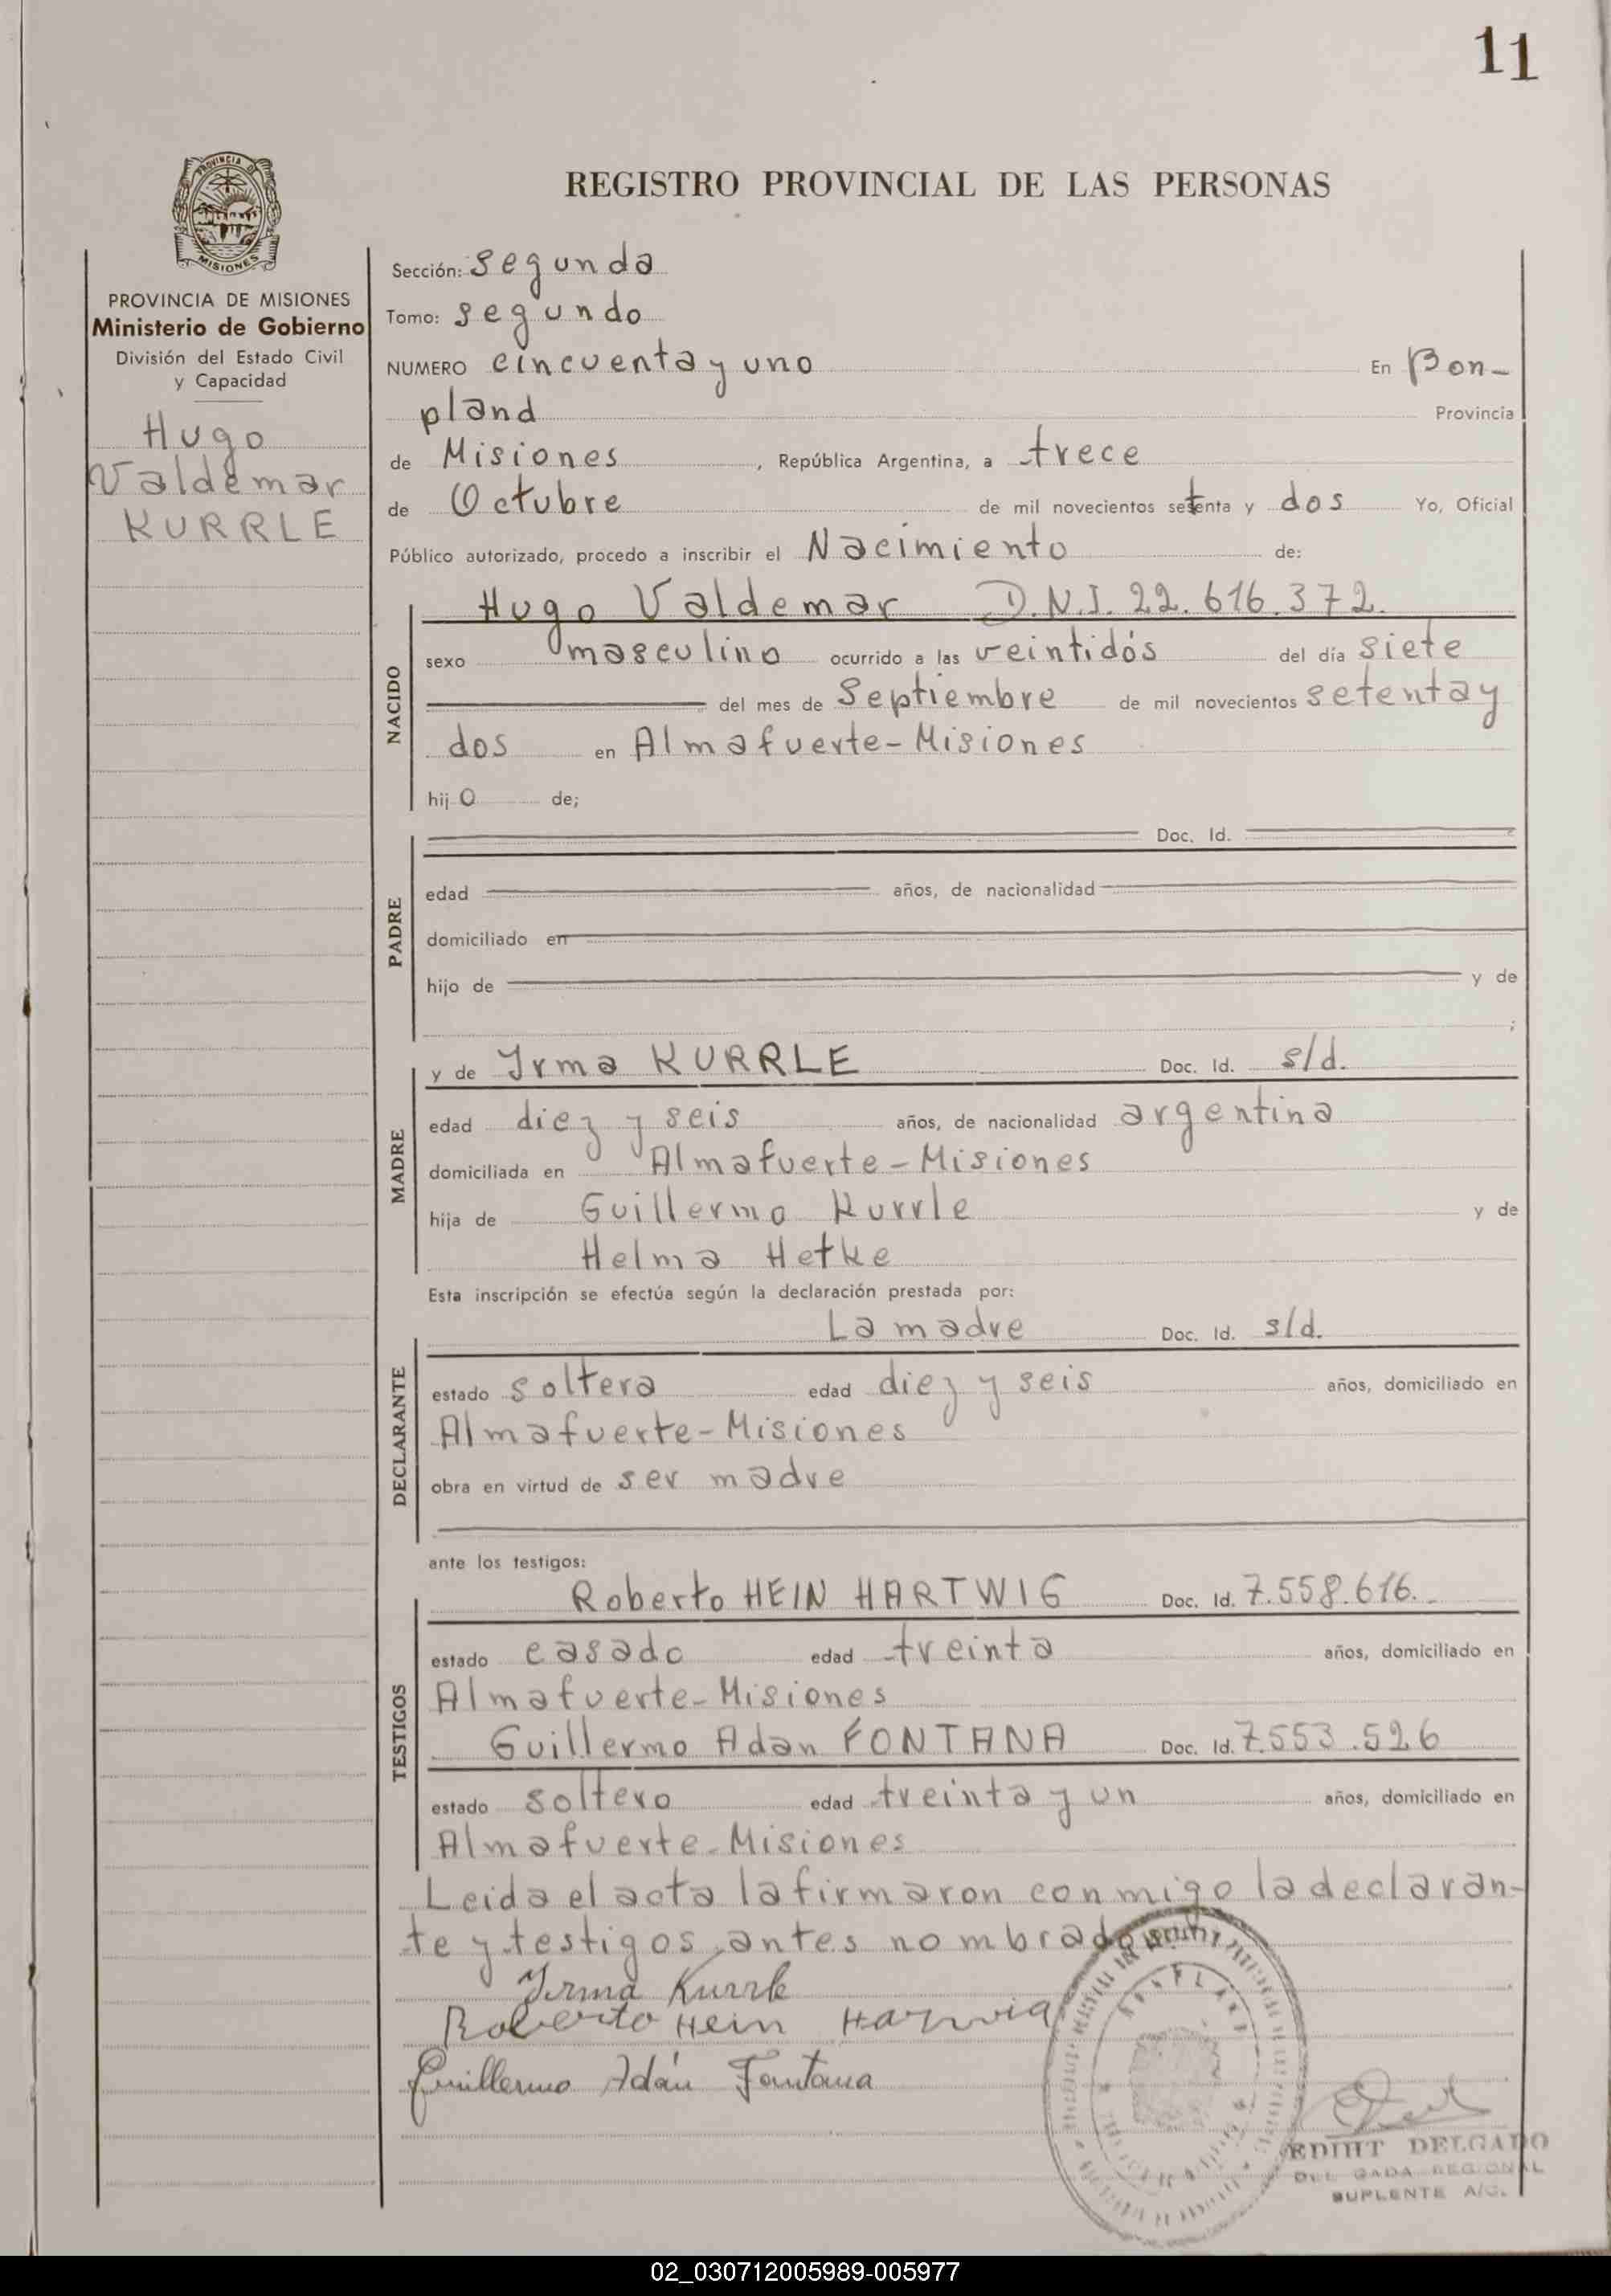 11
PROVINCIA DE
MISIONES
REGISTRO PROVINCIAL DE LAS PERSONAS
PROVINCIA DE MISIONES
Ministerio de Gobierno
División del Estado Civil
y Capacidad
Hugo
Valdemar
KURRLE
Sección: Segunda
Tomo: Segundo
NUMERO cincuenta y uno En Bon-
pland Provincia
de Misiones, República Argentina, a trece
de Octubre de mil novecientos setenta y dos Yo, Oficial
Público autorizado, procedo a inscribir el Nacimiento de:
NACIDO
Hugo Valdemar D.N.I. 22.616.372.
sexo masculino ocurrido a las veintidós del día siete
del mes de Septiembre de mil novecientos setenta y
dos en Almafuerte-Misiones
hijo de;
PADRE
Doc. Id.
edad años, de nacionalidad
domiciliado en
hijo de y de
;
MADRE
y de Irma KURRLE Doc. Id. s/d.
edad diez y seis años, de nacionalidad argentina
domiciliada en Almafuerte-Misiones
hija de Guillermo Kurrle y de
Helma Hetke
Esta inscripción se efectúa según la declaración prestada por:
DECLARANTE
La madre Doc. Id. s/d.
estado soltera edad diez y seis años, domiciliado en
Almafuerte-Misiones
obra en virtud de ser madre
ante los testigos:
TESTIGOS
Roberto HEIN HARTWIG Doc. Id. 7.558.616.
estado casado edad treinta años, domiciliado en
Almafuerte-Misiones
Guillermo Adan FONTANA Doc. Id. 7.553.526
estado soltero edad treinta y un años, domiciliado en
Almafuerte-Misiones
Leida el acta la firmaron conmigo la declaran-
te y testigos, antes nombrados
Irma Kurrle
Roberto Hein Harwig
Guillermo Adán Fontana
EDIHT DELGADO
DELEGADA REGIONAL
SUPLENTE A/C.
02_030712005989-005977